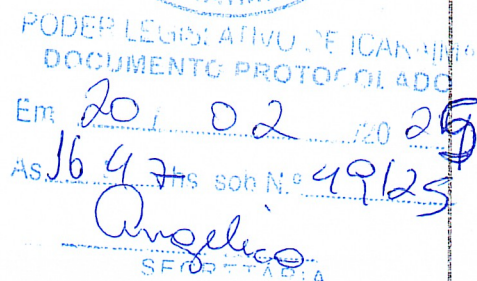 PODER LEGISLATIVO DE ICARAIMA
DOCUMENTO PROTOCOLADO
Em 20 / 02 /20 25
As 16 47 hs sob N.º 49/25
Angelica
SECRETARIA